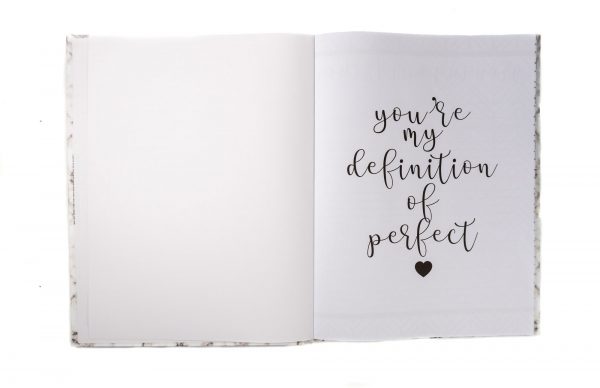 you're
my
definition
of
perfect